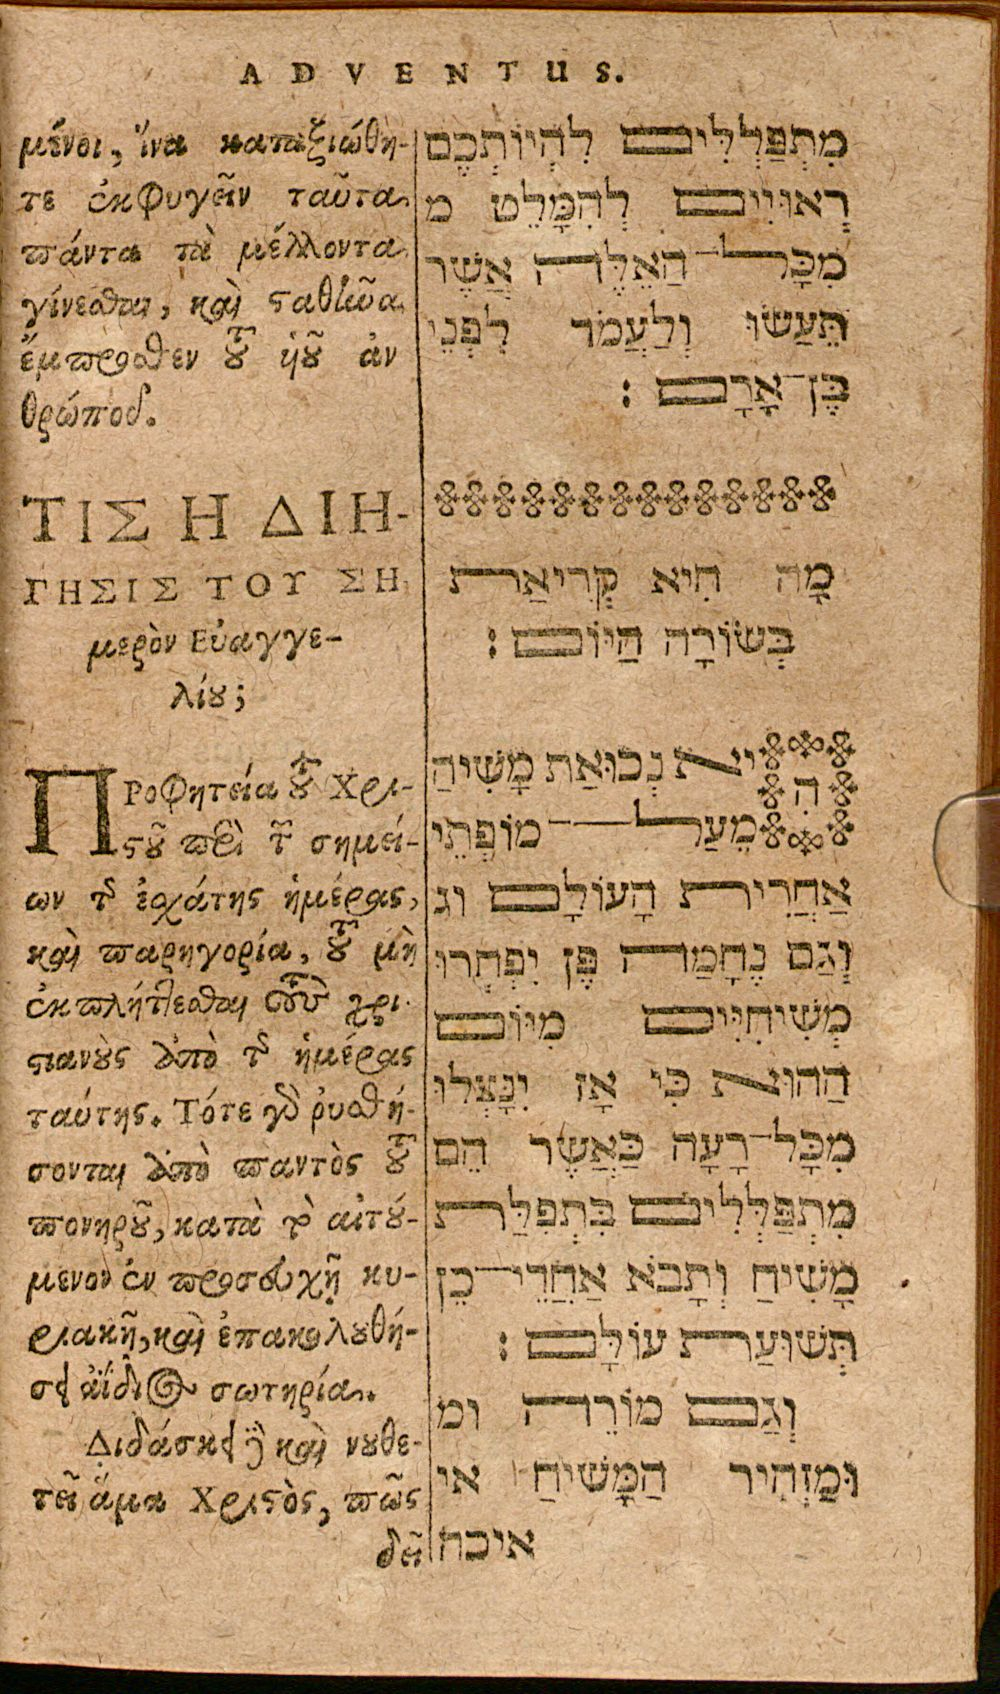 ADVENTUS.
μένοι, ἵνα καταξιώθη-
τε ἐκφυγεῖν ταῦτα
πάντα τὰ μέλλοντα
γίνεσθαι, καὶ σταθῆναι
ἔμπροσθεν τοῦ ἡοῦ ἀν
θρώπου.
ΤΙΣ Η ΔΙΗ-
ΓΗΣΙΣ ΤΟΥ ΣΗ
μερὸν Εὐαγγε-
λίου;
ΠΡοφητεία τοῦ Χρι-
στοῦ περὶ τῶν σημεί-
ων τῆς ἐσχάτης ἡμέρας,
καὶ παρηγορία, τοῦ μὴ
ἐκπλήττεσθαι τοὺς χρι-
στιανοὺς ἀπὸ τῆς ἡμέρας
ταύτης. Τότε γὰρ ῥυσθή-
σονται ἀπὸ παντὸς τοῦ
πονηροῦ, κατὰ τὸ αἰτού-
μενον ἐν προσευχῇ κυ-
ριακῇ, καὶ ἐπακολουθή-
σει ἀΐδιος σωτηρία.
Διδάσκει καὶ νουθε-
τεῖ ἅμα Χριστὸς, πῶς
δεῖ
מִתְפַּלְלִים לִהְיוֹתְכֶם
רְאוּיִים לְהִמָּלֵט מ
מִכָּל־הַאֵלֶּה אֲשֶׁר
תֵּעַשׂוּ וְלַעֲמֹד לִפְנֵי
בֶּן־אָדָם :
מָה הִיא קְרִיאַת
בְּשׂוֹרָה הַיּוֹם :
הִיא נְבוּאַת מָשִׁיחַ
מֵעַל־מוֹפְתֵי
אַחֲרִית הָעוֹלָם וג
וְגַם נֶחָמָה פֶּן יִפְחֲרוּ
מְשִׁיחִיִּים מִיּוֹם
הַהוּא כִּי אָז יִנָּצְלוּ
מִכָּל־רָעָה כַּאֲשֶׁר הֵם
מִתְפַּלְלִים בִּתְפִלַּת
מָשִׁיחַ וְתָבֹא אַחֲרֵי־כֵן
תְּשׁוּעַת עוֹלָם :
וְגַם מוֹרֶה ומ
וּמַזְהִיר הַמָּשִׁיחַ אי
איכה